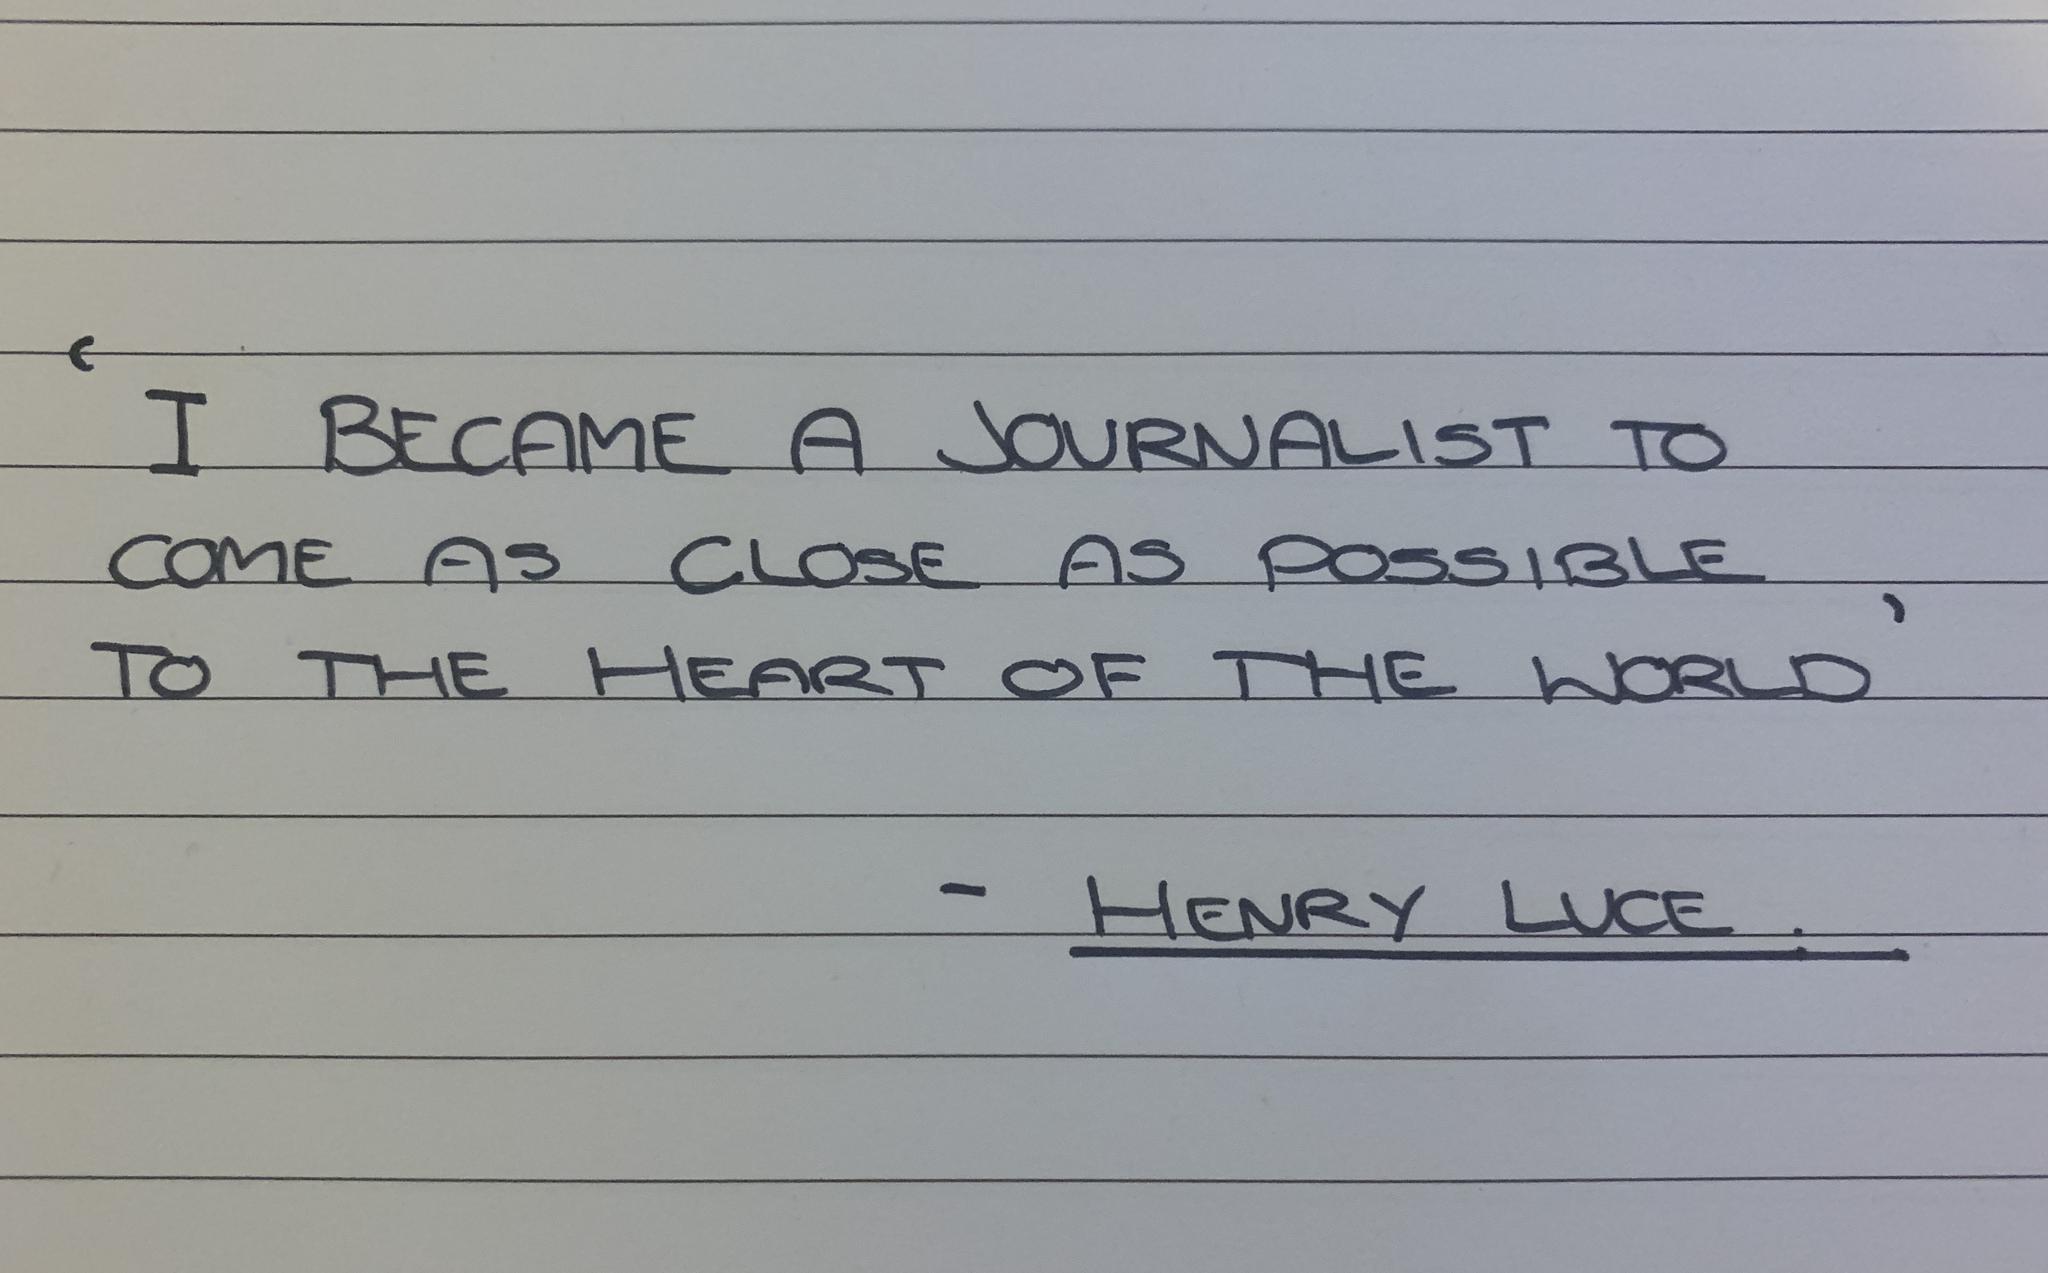 ‘I BECAME A JOURNALIST TO
COME AS CLOSE AS POSSIBLE
TO THE HEART OF THE WORLD’
- HENRY LUCE.